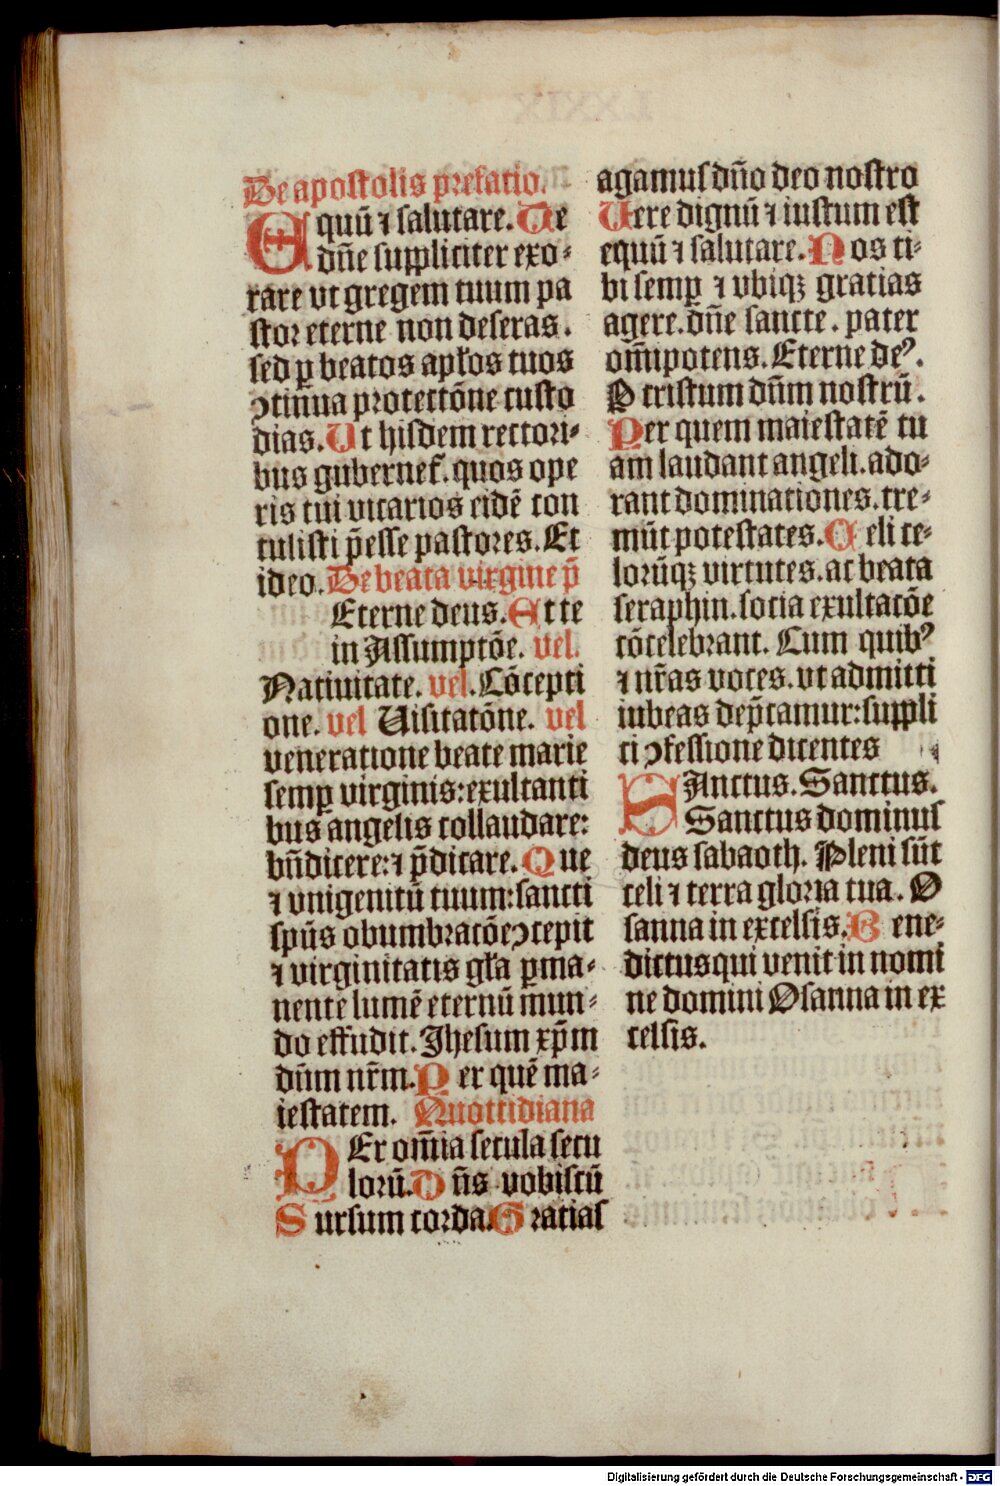 De apostolis prefatio.
Equū ⁊ salutare. Te
dn̄e suppliciter exo⸗
rare vt gregem tuum pa
stor eterne non deseras.
sed ꝑ beatos apłos tuos
ↄtinua protectōne custo
dias. Ut hisdem rectori⸗
bus gubernet̄. quos ope
ris tui vicarios eidē con
tulisti p̄esse pastores. Et
ideo. De beata virgine p̄
Eterne deus. Et te
in Assumptōe. vel.
Natiuitate. vel. Cōcepti
one. vel Uisitatōne. vel
veneratione beate marie
semꝑ virginis: exultanti
bus angelis collaudare:
bn̄dicere: ⁊ p̄dicare. Que
⁊ vnigenitū tuum: sancti
spūs obumbratōe ↄcepit
⁊ virginitatis gła ꝑma⸗
nente lumē eternū mun⸗
do effudit. Jhesum xp̄m
dn̄m nr̄m. Per quē ma⸗
iestatem. Quottidiana
PEr om̄ia secula secu
lorū. Dn̄s vobiscū
Sursum corda. Gratias
agamus dn̄o deo nostro
Uere dignū ⁊ iustum est
equū ⁊ salutare. Nos ti⸗
bi semꝑ ⁊ vbiqꝫ gratias
agere. dn̄e sancte. pater
om̄ipotens. Eterne deꝰ.
P cristum dn̄m nostrū.
Per quem maiestatē tu
am laudant angeli. ado⸗
rant dominationes. tre⸗
mūt potestates. Celi ce⸗
lorūqꝫ virtutes. ac beata
seraphin. socia exultatōe
cōcelebrant. Cum quibꝰ
⁊ nr̄as voces. vt admitti
iubeas dep̄camur: suppli
ci ↄfessione dicentes
SAnctus. Sanctus.
Sanctus dominus
deus sabaoth. Pleni sūt
celi ⁊ terra gloria tua. O
sanna in excelsis. Bene⸗
dictus qui venit in nomi
ne domini Osanna in ex
celsis.
Digitalisierung gefördert durch die Deutsche Forschungsgemeinschaft - DFG